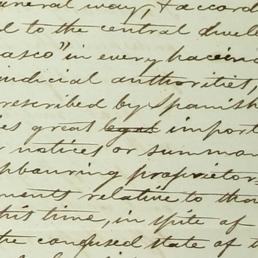 general way, & accord
d to the central dwel
asco" in every hacien
judicial authorities,
rescribed by Spanish
es great legal import
r notices or summon
ghbouring proprietor
ments relative to tho
this time, in spite of
the confused state of t